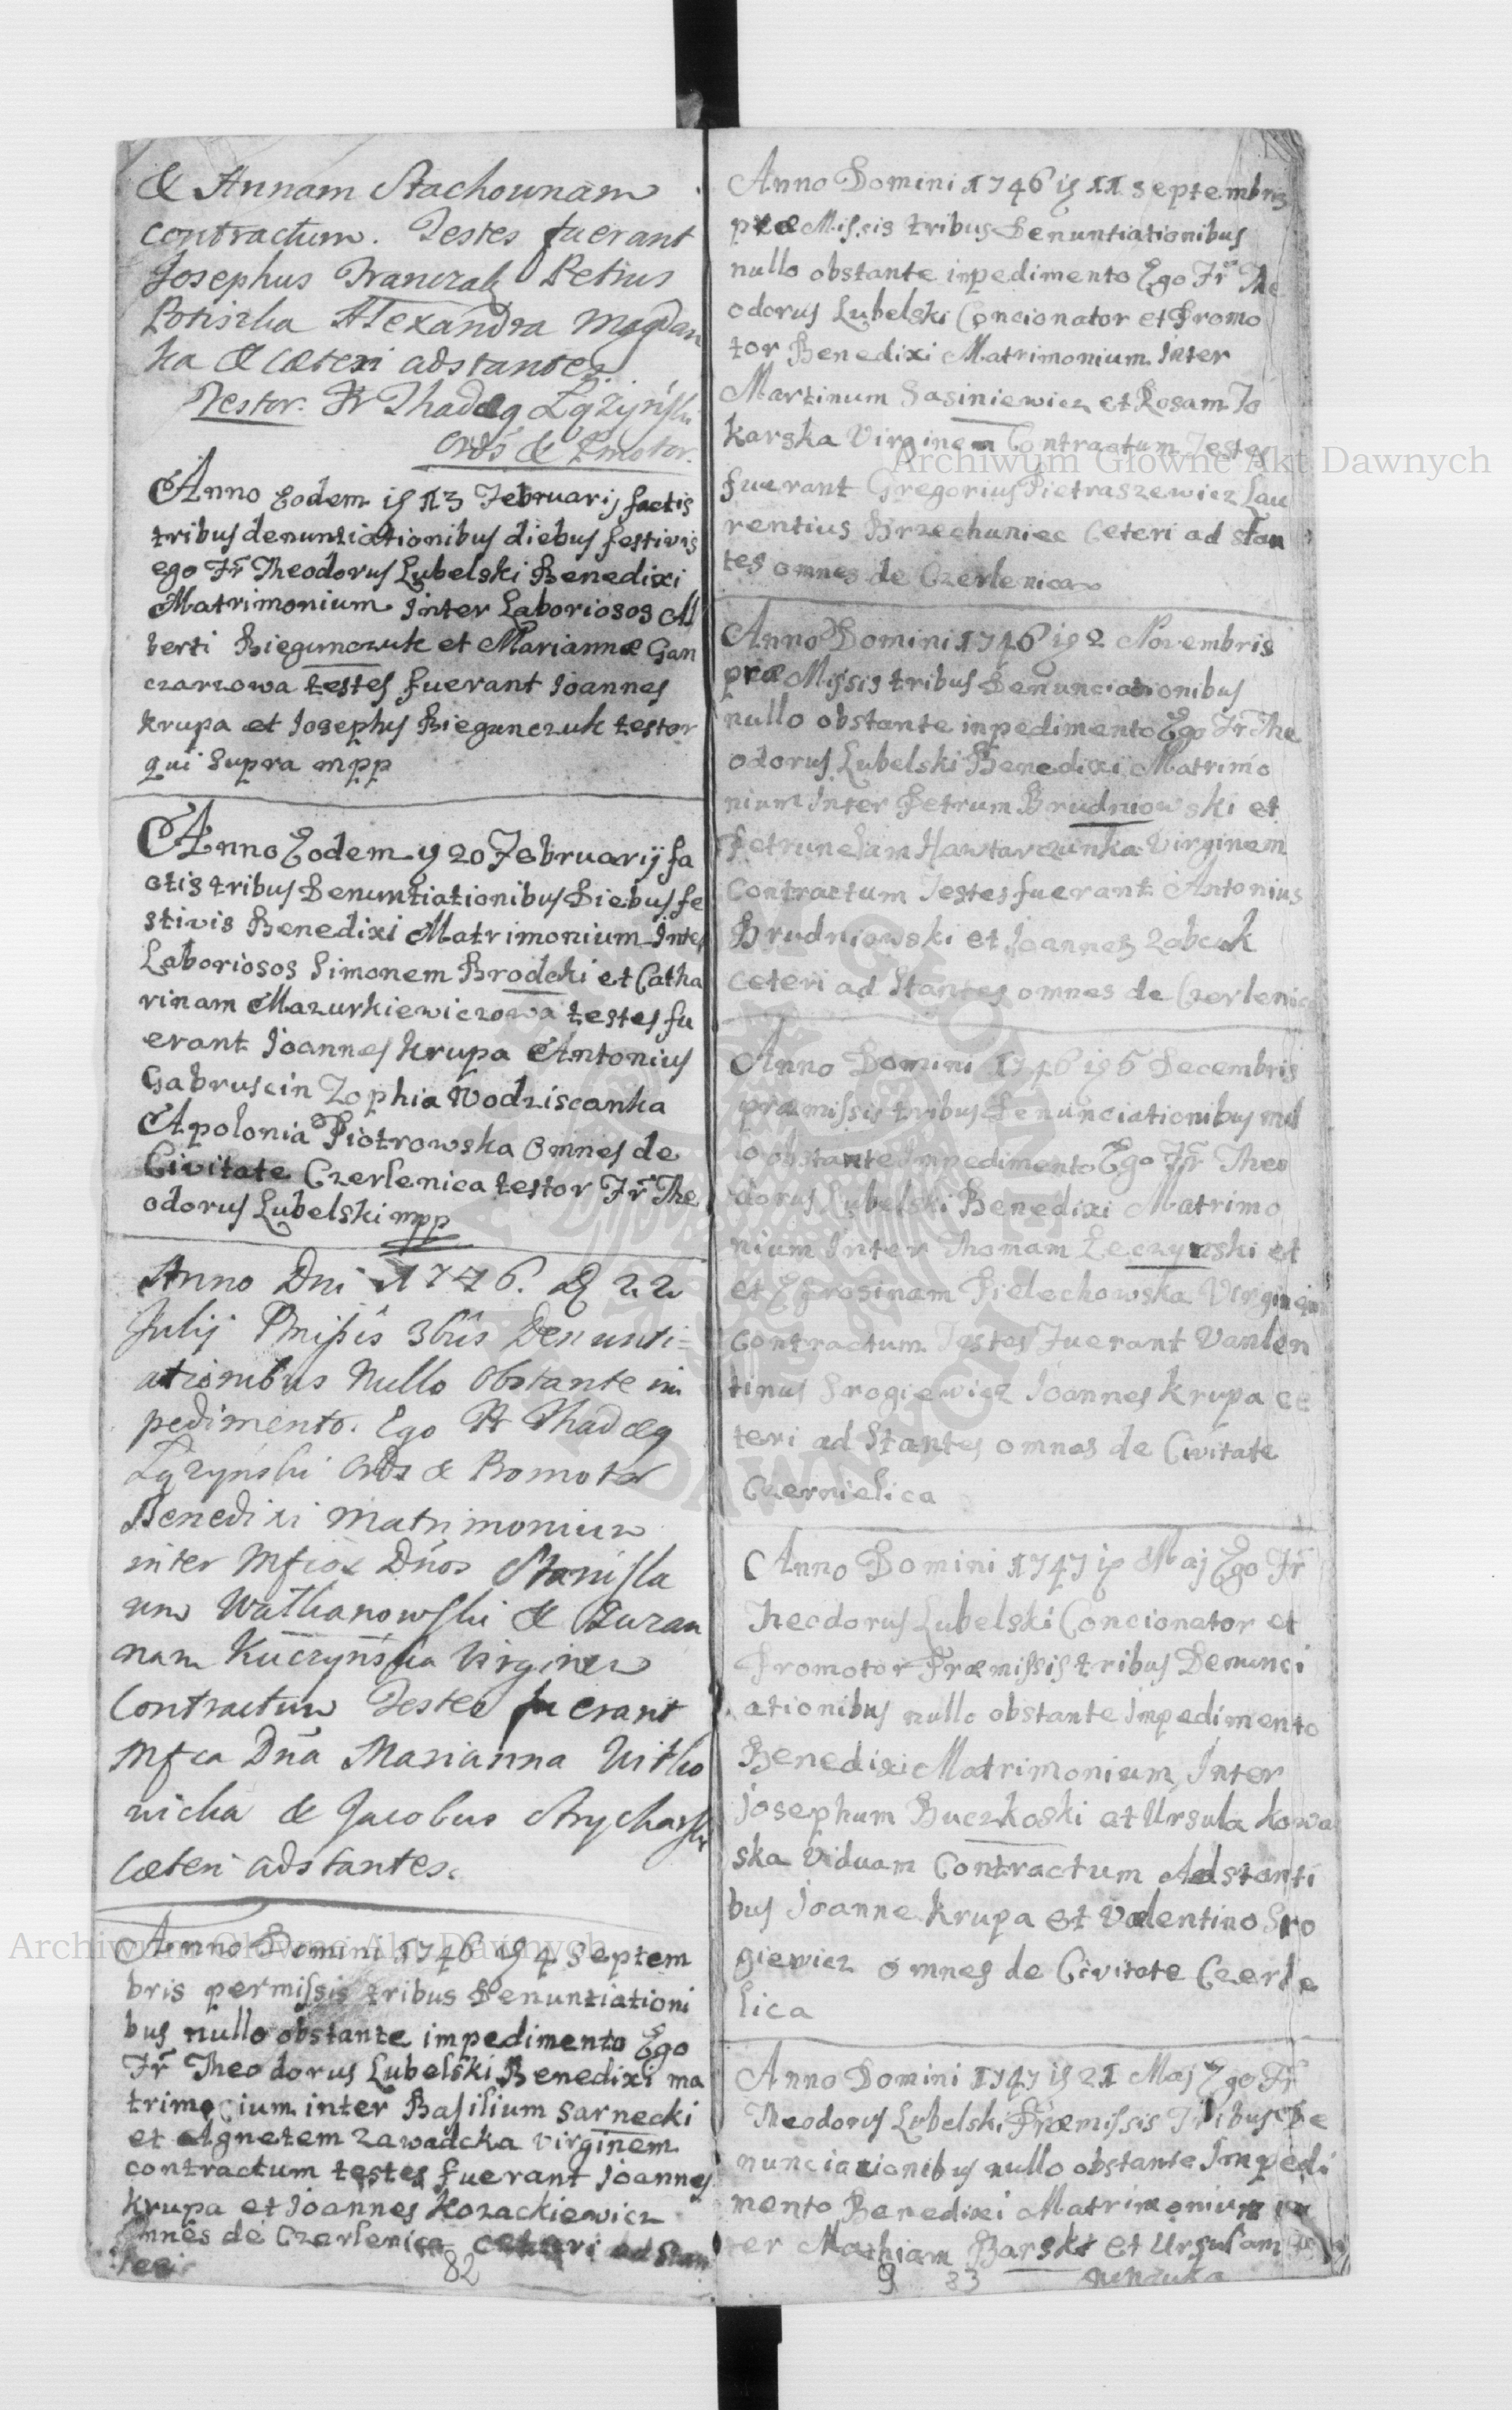 & Annam Stachownam
contractum. Testes fuerant
Josephus Franczak Petrus
Potiszka Alexandra Magdan
ka & cæteri adstantes
Testor. Fr Thadæg
Ords & Pmotor.
Anno Eodem ig 13 Februarij factis
tribus denuntiationibus diebus festivis
ego Fr Theodorus Lubelski Benedixi
Matrimonium Inter Laboriosos Al
berti Biegunczuk et Mariannæ Gan
czarzowa testes fuerant Joannes
krupa et Josephus Biegunczuk testor
qui Supra mpp
Anno Eodem y 20 Februarij fa
ctis tribus Denuntiationibus Diebus fe
stivis Benedixi Matrimonium Inter
Laboriosos Simonem Brodcki et Catha
rinam Mazurkiewiczowa testes fu
erant Joannes Krupa Antonius
Gabruscin Zophia Wodziscanka
Apolonia Piotrowska Omnes de
Civitate Czerlenica testor Fr The
odorus Lubelski mpp
Anno Dni 1746. D 22
Julij Pmissis 3bus Denunti=
ationibus Nullo Obstante im
pedimento. Ego Fr Thadæg
Ords & Promotor
Benedixi Matrimonium
inter Mfcos Dnos Stanisla
um Watkanowski & Zuzan
nam Kuczynska Virginem
Contractum Testes fuerant
Mfca Dna Marianna Witko
wicka & Jacobus Strycharski
Cæteri adstantes.
Anno Domini 1746 ig 4 Septem
bris permissis tribus Denuntiationi
bus nullo obstante impedimento Ego
Fr Theodorus Lubelski Benedixi ma
trimocium inter Basilium Sarnecki
et Agnetem Zawadcka virginem
contractum testes fuerant Joannes
krupa et Joannes Kozackiewicz
Omnes de Czerlenica ceteri ad Stan
tes
82
Anno Domini 1746 ig 11 Septembris
præMissis tribus Denuntiationibus
nullo obstante inpedimento Ego Fr The
odorus Lubelski Concionator et Promo
tor Benedixi Matrimonium Inter
Martinum Sasiniewicz et Rosam To
karska Virginem Contractum Testes
fuerant Gregorius Pietraszewicz Lau
rentius Brzechuniec Ceteri ad stan
tes omnes de Czerlenica
Anno Domini 1746 ig 2 Novembris
præMissis tribus Denunciationibus
nullo obstante inpedimento Ego Fr The
odorus Lubelski Benedixi Matrimo
nium Inter Petrum Brudniowski et
Petrunelam Hawtarczunka Virginem
Contractum Testes fuerant Antonius
Brudniowski et Joannes Zabcuk
ceteri ad Stantes omnes de Czerlenica
Anno Domini 1746 ig 5 Decembris
præmissis tribus Denunciationibus nul
lo obstante Inpedimento Ego Fr Theo
dorus Lubelski Benedixi Matrimo
nium Inter Thomam Leczynski et
et Efrosinam Pielechowska Virginem
Contractum Testes Fuerant Vanlen
tinus Srogiewicz Joannes krupa ce
teri ad Stantes omnes de Civitate
Czernielica
Anno Domini 1747 ip Maj Ego Fr
Theodorus Lubelski Concionator et
Promotor Præmissis tribus Denunci
ationibus nullo obstante Impedimento
Benedixi Matrimonium Inter
Josephum Buczkoski et Ursula kowa
ska Viduam Contractum Adstanti
bus Joanne krupa et Valentino Sro
giewicz omnes de Civitate Czerle
lica
Anno Domini 1747 ig 21 Maj Ego Fr
Theodorus Lubelski Præmissis Tribus De
nunciationibus nullo obstante Impedi
mento Benedixi Matrimonium in
ter Mathiam Barski et Ursulam
9 83
Archiwum Główne Akt Dawnych
Archiwum Główne Akt Dawnych